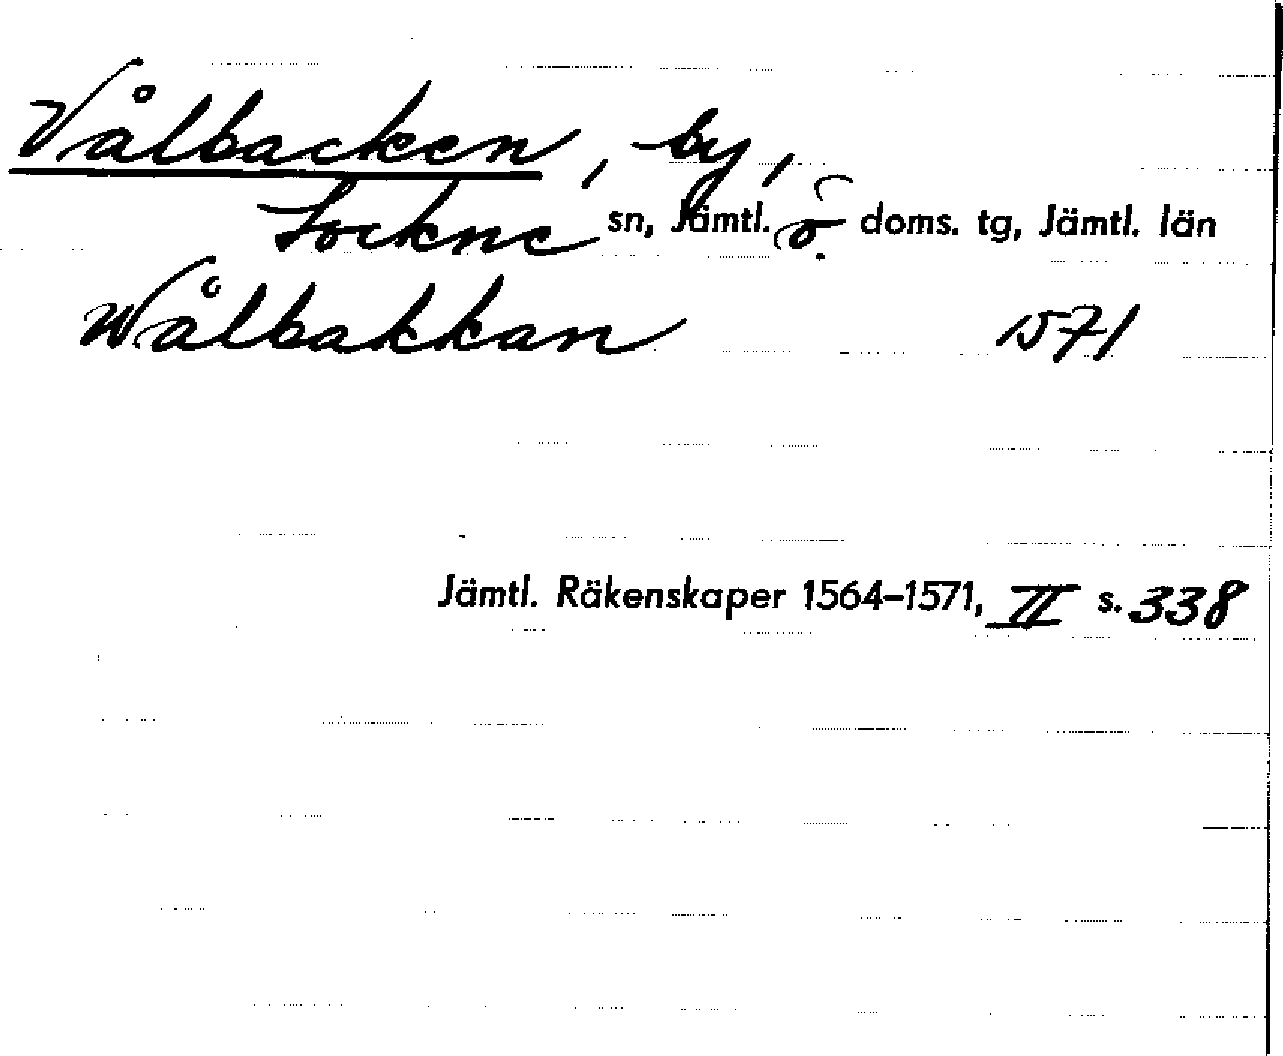 Vålbacken, by,
Lockne sn, Jämtl. ö. doms. tg, Jämtl. län
Wålbakkan 1571
Jämtl. Räkenskaper 1564-1571, II s. 338